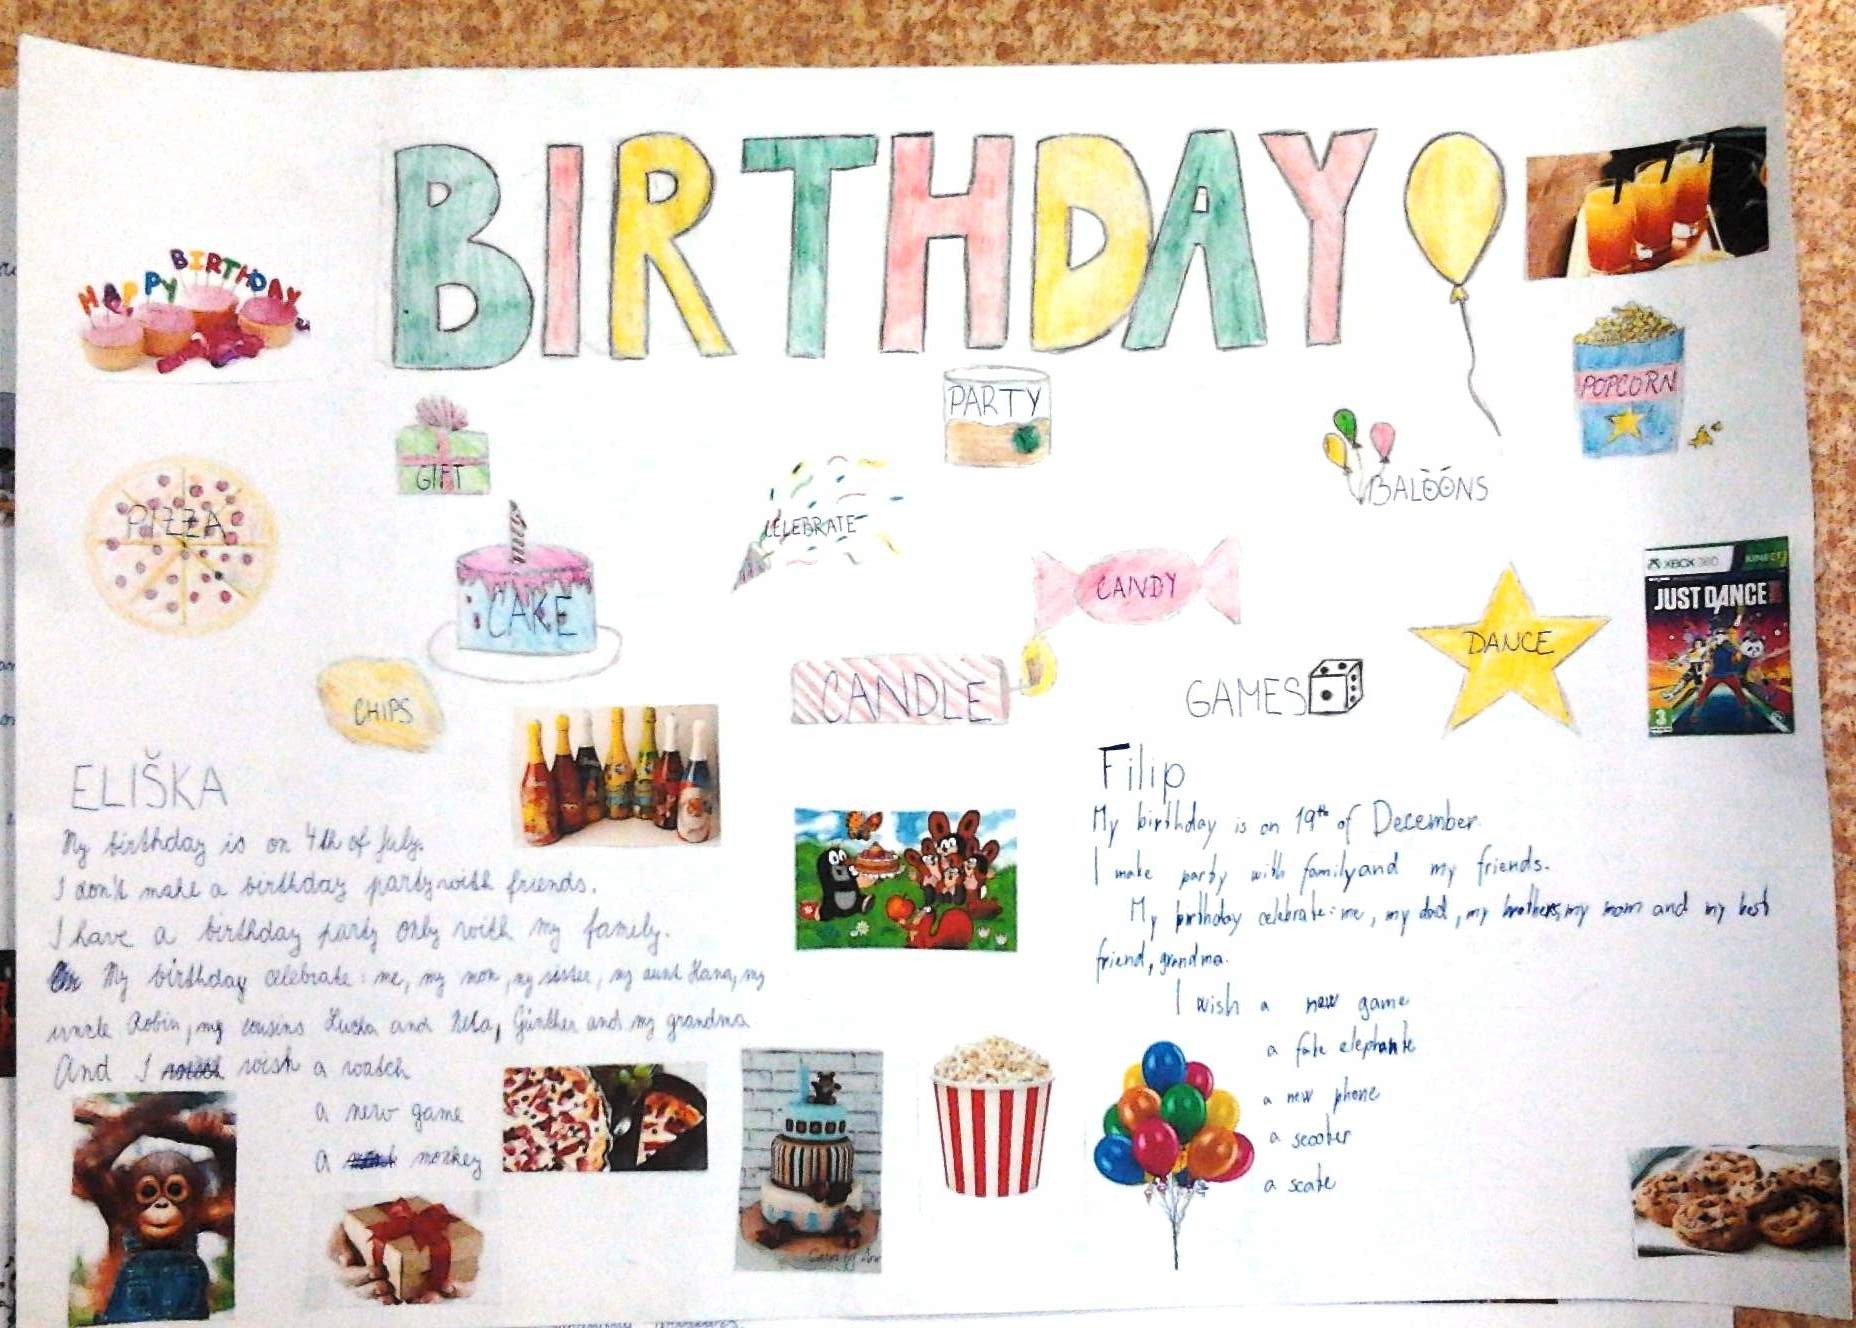 BIRTHDAY
HAPPY BIRTHDAY
PARTY
POPCORN
GIFT
BALOÓNS
PIZZA
CELEBRATE
CAKE
CANDY
XBOX 360 KINECT
JUST DANCE
DANCE
CHIPS
CANDLE
GAMES
3
ELIŠKA
My birthday is on 4th of July.
I don't make a birthday party with friends.
I have a birthday party only with my family.
My birthday celebrate: me, my mom, my sister, my aunt Hana, my
uncle Robin, my cousins and Nela, Günther and my grandma
And I wish a watch
a new game
a monkey
Filip
My birthday is on 19th of December.
I make party with family and my friends.
My birthday celebrate: me, my dad, my brothers, my mom and my best
friend, grandma.
I wish a new game
a fate elephante
a new phone
a scooter
a scate
Cakes by